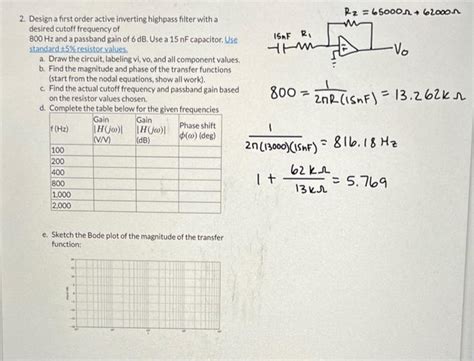 2. Design a first order active inverting highpass filter with a
desired cutoff frequency of
800 Hz and a passband gain of 6 dB. Use a 15 nF capacitor. Use
standard ±5% resistor values.
a. Draw the circuit, labeling vi, vo, and all component values.
b. Find the magnitude and phase of the transfer functions
(start from the nodal equations, show all work).
c. Find the actual cutoff frequency and passband gain based
on the resistor values chosen.
d. Complete the table below for the given frequencies
f (Hz)
Gain |H(jω)| (V/V)
Gain |H(jω)| (dB)
Phase shift ϕ(ω) (deg)
100
200
400
800
1,000
2,000
e. Sketch the Bode plot of the magnitude of the transfer
function:
R2 = 65000Ω + 62000Ω
15nF R1
Vo
800 = 1 / 2πR(15nF) = 13.262kΩ
1 / 2π(13000)(15nF) = 816.18 Hz
1 + 62kΩ / 13kΩ = 5.769